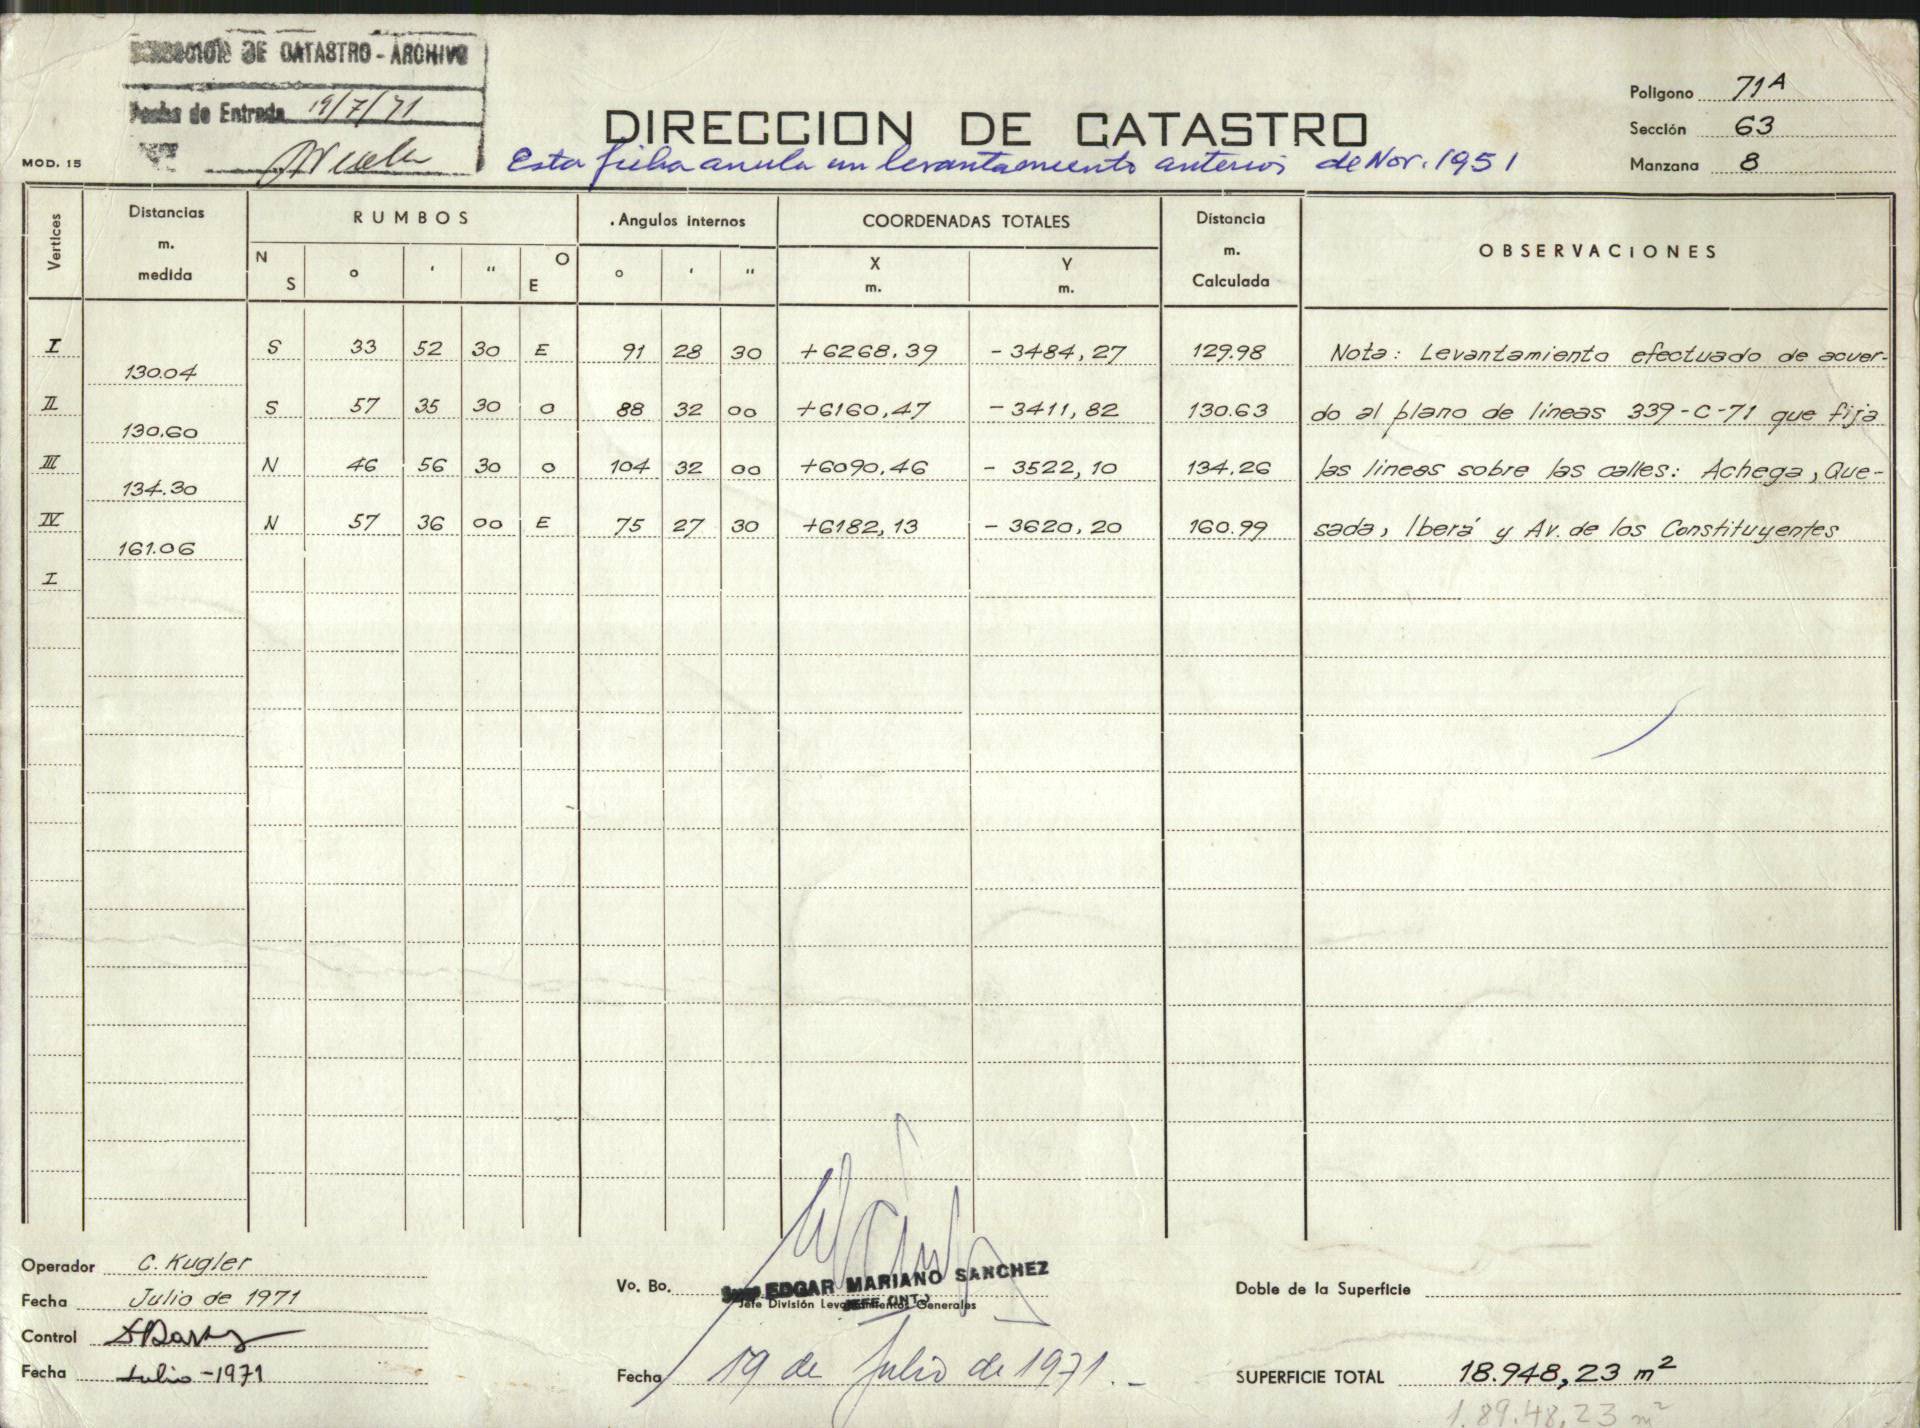 DIRECCION DE CATASTRO - ARCHIVO
Fecha de Entrada 19/7/71
MOD. 15
DIRECCION DE CATASTRO
Esta ficha anula un levantamiento anterior de Nov. 1951
Polígono 71A
Sección 63
Manzana 8
Vertices Distancias m. medida RUMBOS Angulos internos COORDENADAS TOTALES Distancia m. Calculada OBSERVACIONES
N S ° ' " O E ° ' " X m. Y m.
I S 33 52 30 E 91 28 30 +6268,39 -3484,27 129.98 Nota: Levantamiento efectuado de acuer-
130.04
II S 57 35 30 O 88 32 00 +6160,47 -3411,82 130.63 do al plano de líneas 339-C-71 que fija
130.60
III N 46 56 30 O 104 32 00 +6090,46 -3522,10 134.26 las líneas sobre las calles: Achega, Que-
134.30
IV N 57 36 00 E 75 27 30 +6182,13 -3620,20 160.99 sada, Iberá y Av. de los Constituyentes
161.06
I
Operador C. Kugler
Fecha Julio de 1971
Control
Fecha Julio-1971
Vo. Bo. EDGAR MARIANO SANCHEZ
Jefe División Levantamientos Generales
JEFE (INT.)
Fecha 19 de Julio de 1971.-
Doble de la Superficie
SUPERFICIE TOTAL 18.948,23 m²
1.89.48,23 m²